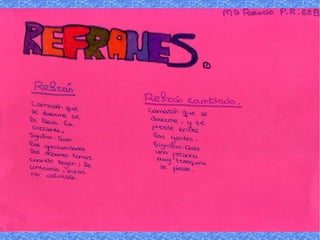 Mª Rosario P.R. 6ºB
REFRANES.
Refrán
Camarón que
se duerme se
lo lleva la
corriente.
Significa: Que
las oportunidades
las debemos tomar
cuando llegan; lo
contrario éstas
no volverán.
Refrán cambiado.
Camarón que se
duerme, y se
pierde entre
las gentes.
Significa: Que
una persona
muy tranquila
se pierde.